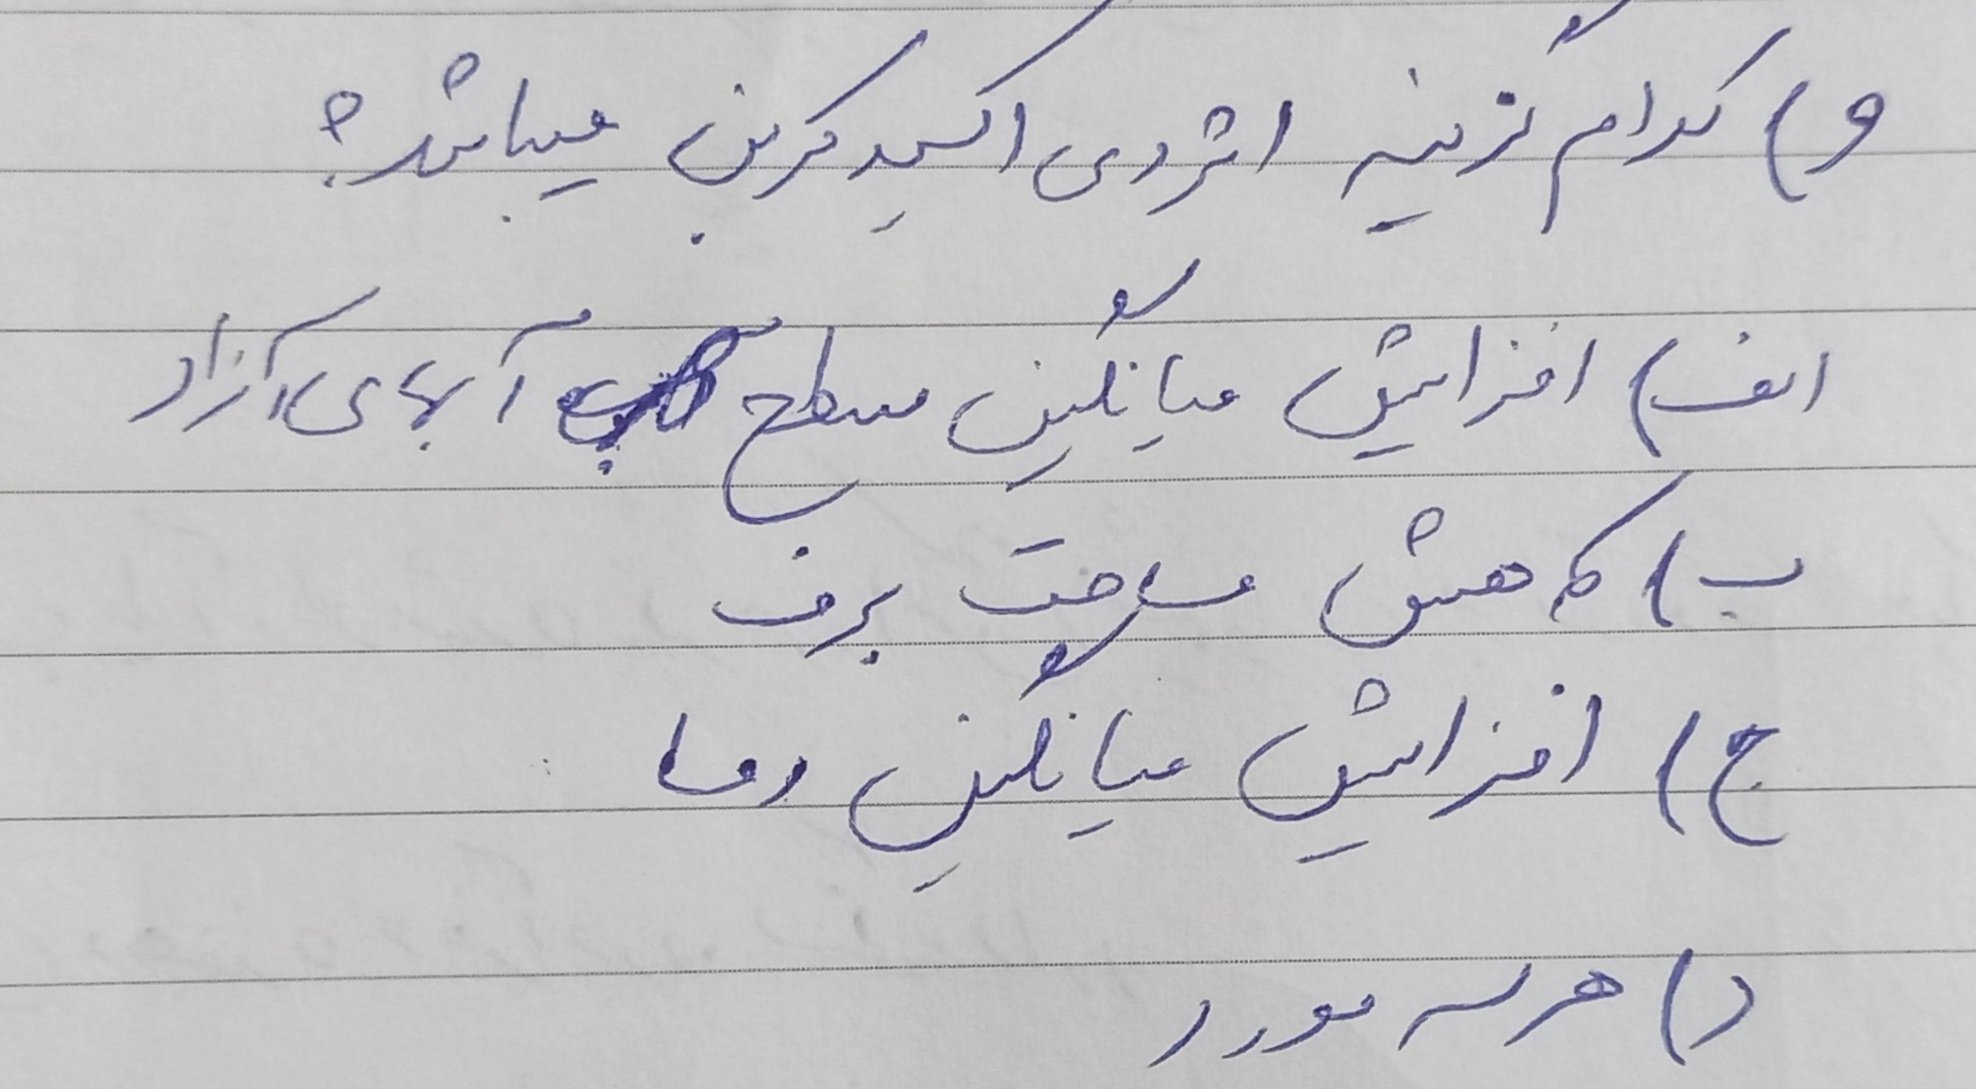 و) کدام گزینه اثر دی اکسید کربن میباشد؟
الف) افزایش میانگین سطح آبهای آزاد
ب) کاهش مساحت برف
ج) افزایش میانگین دما
د) هر سه مورد